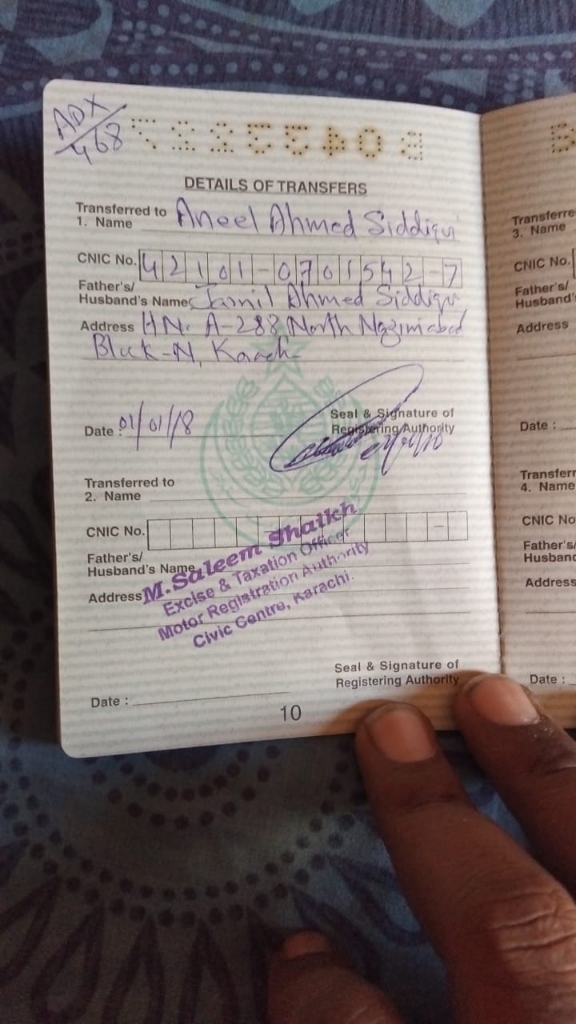 ADX
468
DETAILS OF TRANSFERS
Transferred to
1. Name Aneel Ahmed Siddiqui
CNIC No. 42101-0701542-7
Father's/
Husband's Name Jamil Ahmed Siddiqui
Address H.N. A-288 North Nazimabad
Block-N, Karachi
Date : 01/01/18
Seal & Signature of
Registering Authority
Transferred to
2. Name
CNIC No. -
Father's/
Husband's Name
Address
M. Saleem Shaikh
Excise & Taxation Officer
Motor Registration Authority
Civic Centre, Karachi.
Seal & Signature of
Registering Authority
Date :
10
Transferre
3. Name
CNIC No.
Father's/
Husband'
Address
Date :
Transferr
4. Name
CNIC No
Father's/
Husband
Address
Date :